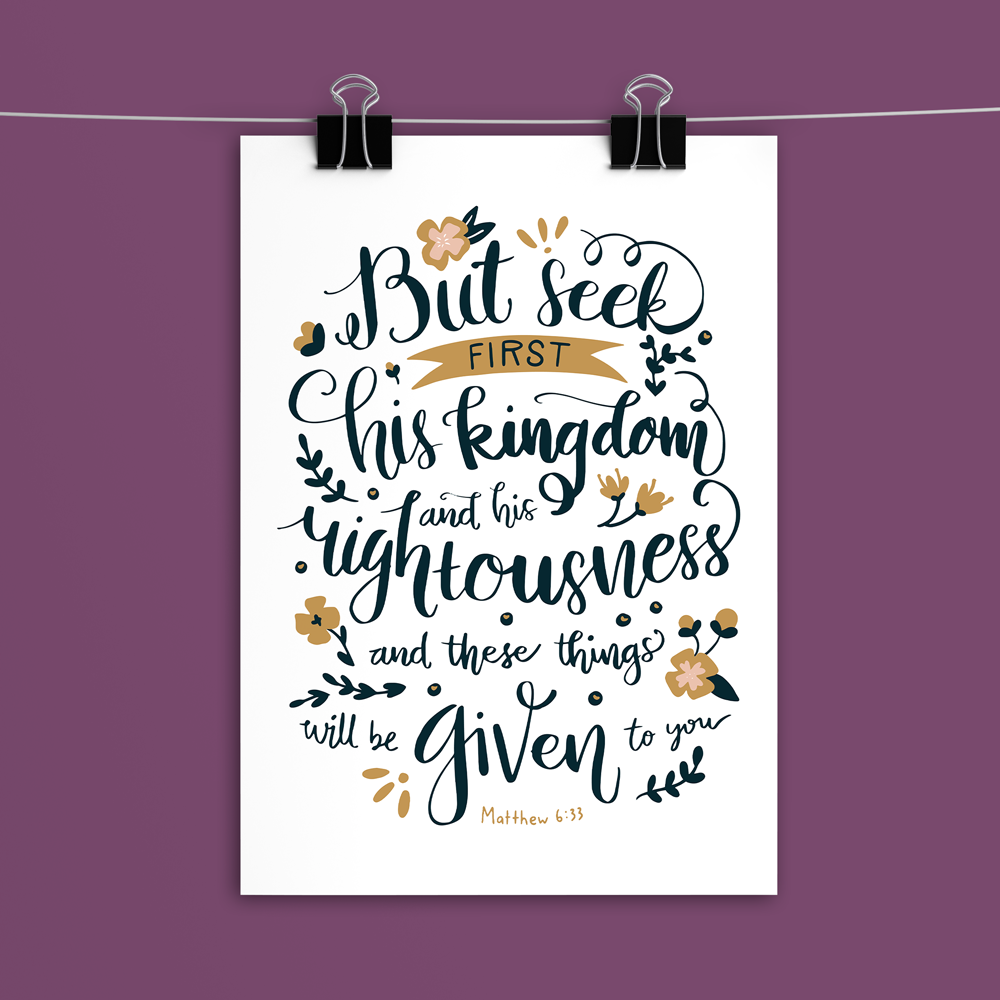 But seek
FIRST
his kingdom
and his
rightousness
and these things
will be given to you
Matthew 6:33